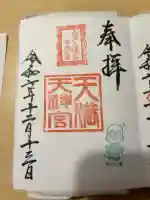 奉拝
天満
天神宮
令和七年十二月十三日